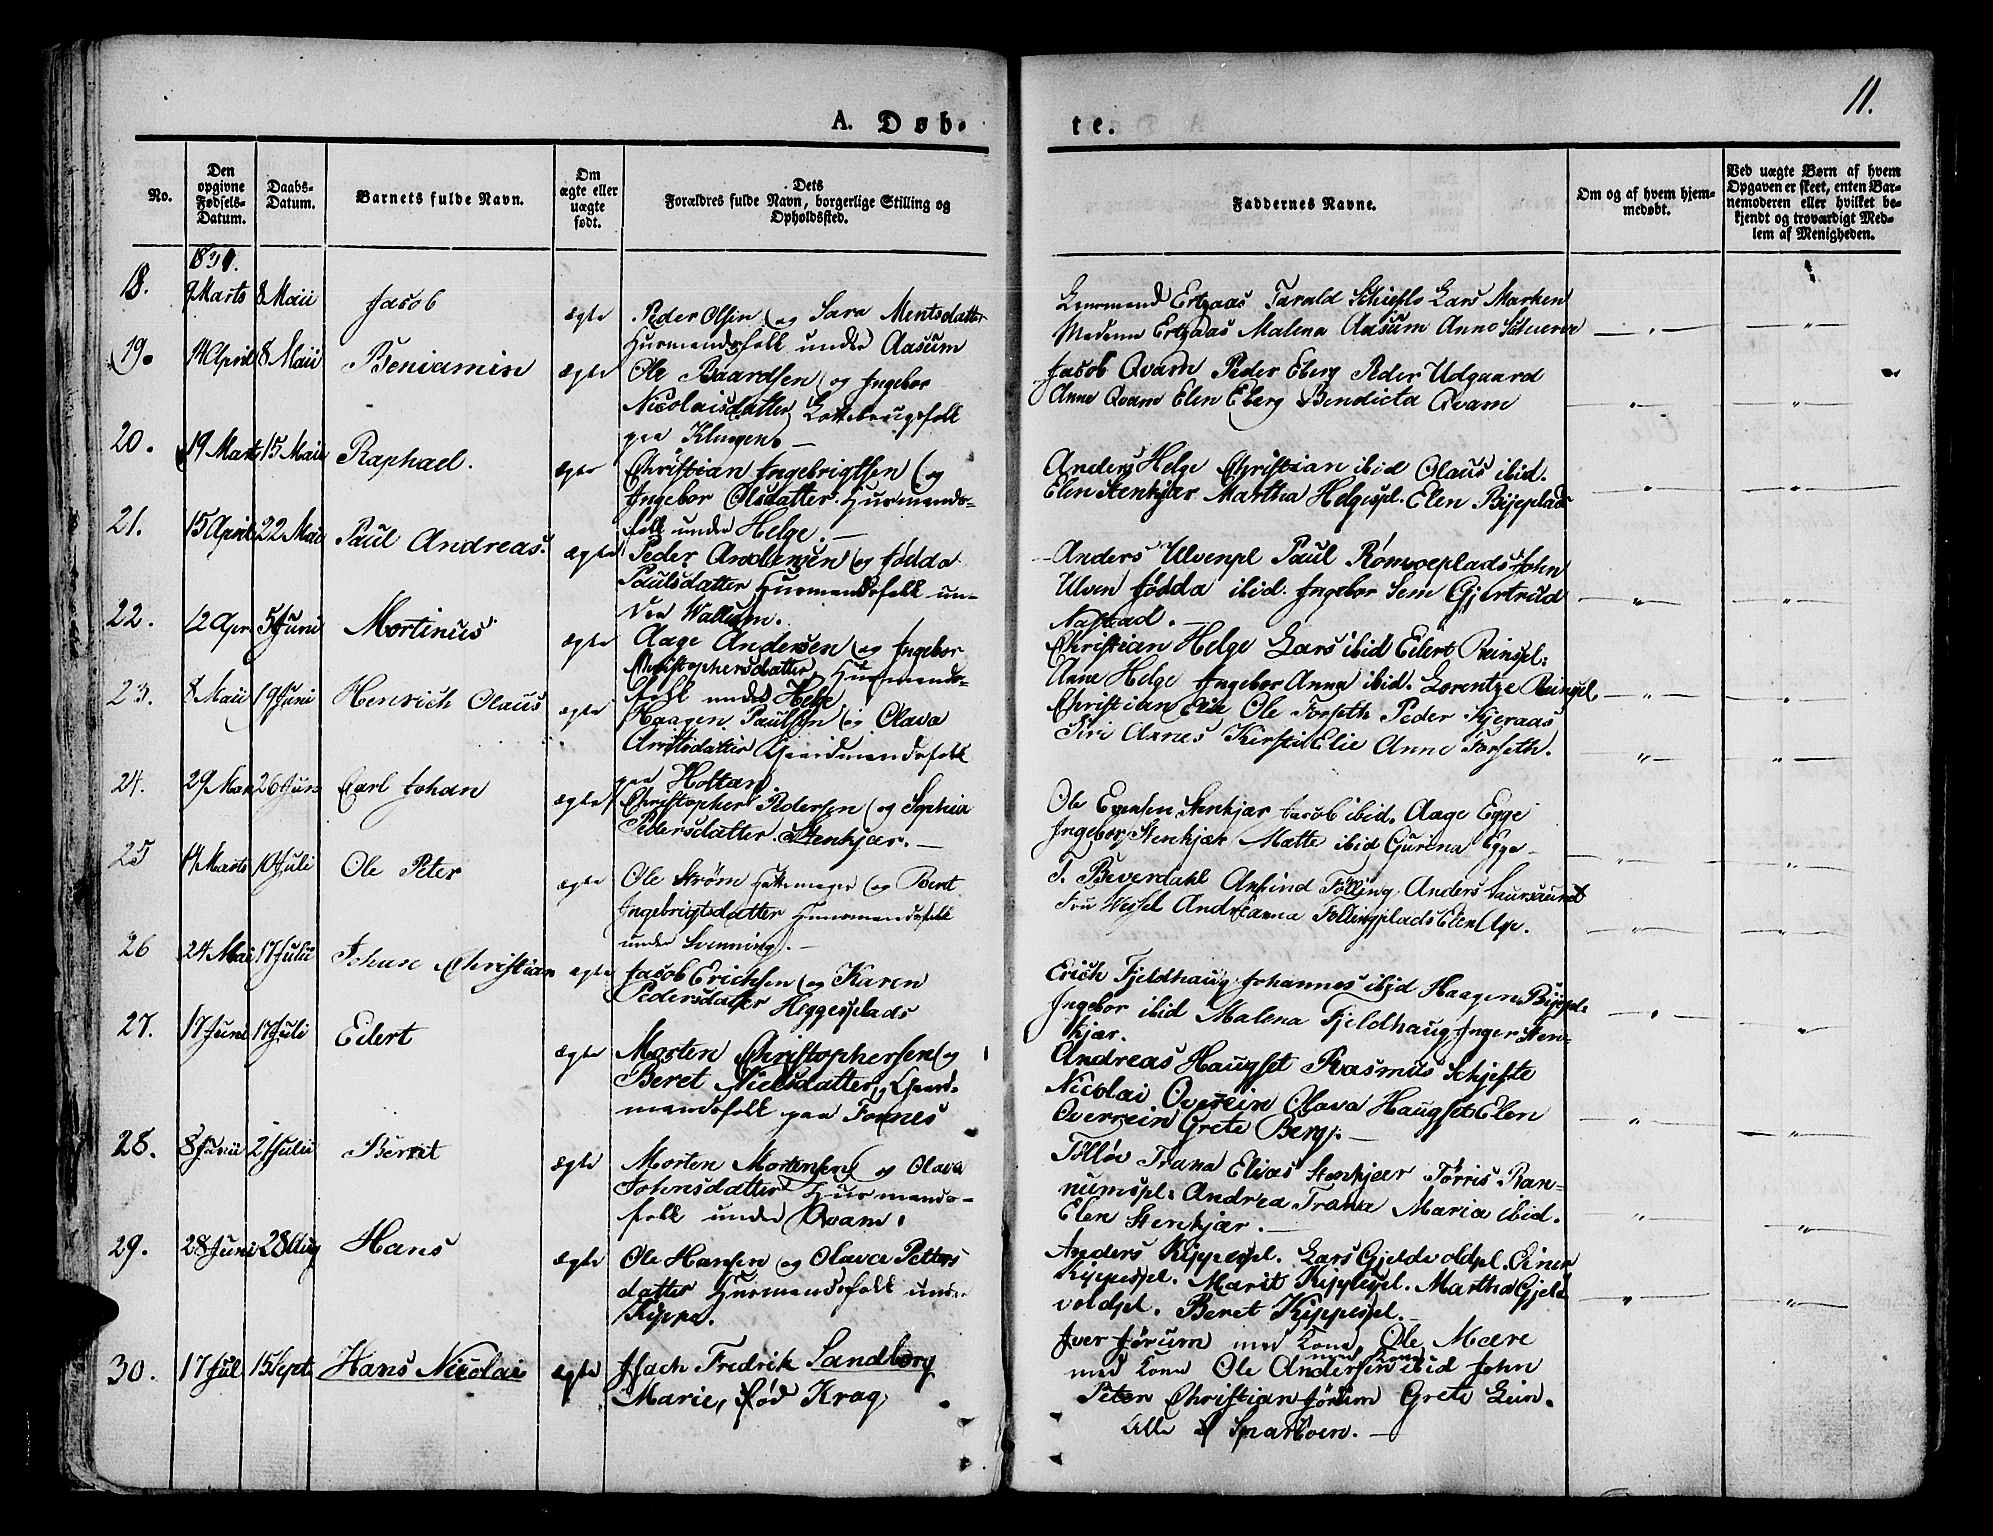 11.
A. Døb-
te.
No.
Den opgivne Fødsels-Datum.
Daabs-Datum.
Barnets fulde Navn.
Om ægte eller uægte født.
Dets Forældres fulde Navn, borgerlige Stilling og Opholdsted.
Faddernes Navne.
Om og af hvem hjem-medøbt.
Ved uægte Børn af hvem Opgaven er skeet, enten Bar-nemoderen eller hvilket be-kjendt og troværdigt Med-lem af Menigheden.
1831.
18. 9 Marts 8 Maii Jacob ægte Peder Olsen og Sara Mentsdatter
Huusmandsfolk under Aasum
Lensmand Tarald Lars
Malena Aasum
19. 14 April 8 Maii Beniamin ægte Ole Baardsen og Ingebor
Nicolaisdatter
paa Klingen.
Jacob Qvam Peder Eberg Peder Udgaard
Anne Qvam Elen Eberg Bendicta Qvam
20. 19 Marts 15 Maii Raphael. ægte Christian Ingebrigtsen og
Ingebor Olsdatter Huusmands-
folk under Helge.
Anders Helge Christian ibid Olaus ibid.
Elen Stenkjær Martha Helgespl. Elen Byeplads
21. 15 April 22 Mai Paul Andreas. ægte Peder Andersen og Fødda
Paulsdatter Huusmandsfolk un-
der Wallum.
Anders Ulvenpl Paul Rømoeplads John
Ulven Fødda ibid. Ingebor Sem Gjertrud
Nastad.
22. 12 Apr 5 Juni Mortinus ægte Aage Andersen og Ingebor
Christophersdatter Huusmands-
folk under Helge
Christian Helge Lars ibid Eilert Reinspl:
Anne Helge Ingebor Anna ibid. Lorentze Reinspl.
23. 8 Maii 19 Juni Henrich Olaus ægte Haagen Paulsen og Olava
Arntsdatter Gaardmandsfolk
paa Holtan
Christian Elie Ole Forseth Peder
Siri Axnes Kirsti Elie Anne Forseth.
24. 29 Mai 26 Jun Carl Johan ægte Christopher Pedersen og Sophia
Pedersdatter Stenkjær.
Ole Evensen Stenkjær Jacob ibid. Aage Egge
Ingebor Stenkjær Mætte ibid Gurina Egge
25 14 Marts 10 Juli Ole Peter ægte Ole Strøm og Beret
Ingebrigtsdatter Huusmandsfolk
under Svenning.
T. Beverdahl Anfind Følling Anders
Fru Wessel Andrianna Føllingplads Elen
26 24 Mai 17 Julii Johan Christian ægte Jacob Erichsen og Karen
Pedersdatter Heggesplads
Erich Fjeldhaug Johannes ibid Haagen Byepl:
Ingebor ibid Malena Fjeldhaug Inger Sten-
kjær.
27. 17 Juni 17 Juli Eilert ægte Morten Christophersen og
Beret Nielsdatter, Gaard-
mandsfolk paa Fornes
Andreas Haugset Rasmus Schjefte
Nicolai Overrein Olava Haugset Elen
Overrein Grete Berg.
28. 8 Junii 21 Julii Bernt ægte Morten Mortensen og Olava
Johnsdatter Huusmands-
folk under Qvam.
Tølløv Trana Elias Stenkjær Tørris Ran-
niemspl: Andrea Trana Maria ibid.
Elen Stenkjær.
29. 28 Juni 28 Aug Hans ægte Ole Hansen og Olava Petters
datter Huusmandsfolk under
Kippe.
Anders Kippespl. Lars Gjeldvoldpl. Einer
Kippespl. Marit Kippespl. Martha Gjeld
voldpl. Beret Kippespl.
30. 17 Jul 15 Sept. Hans Nicolai ægte Isach Fredrik Sandborg
Marie, Fød Krag
Iver Jørum med Kone, Ole Mære
med Kone Ole Andersen med Kone ibid John
Peter Christian Jørum Grete Lein.
Alle Sparboen.